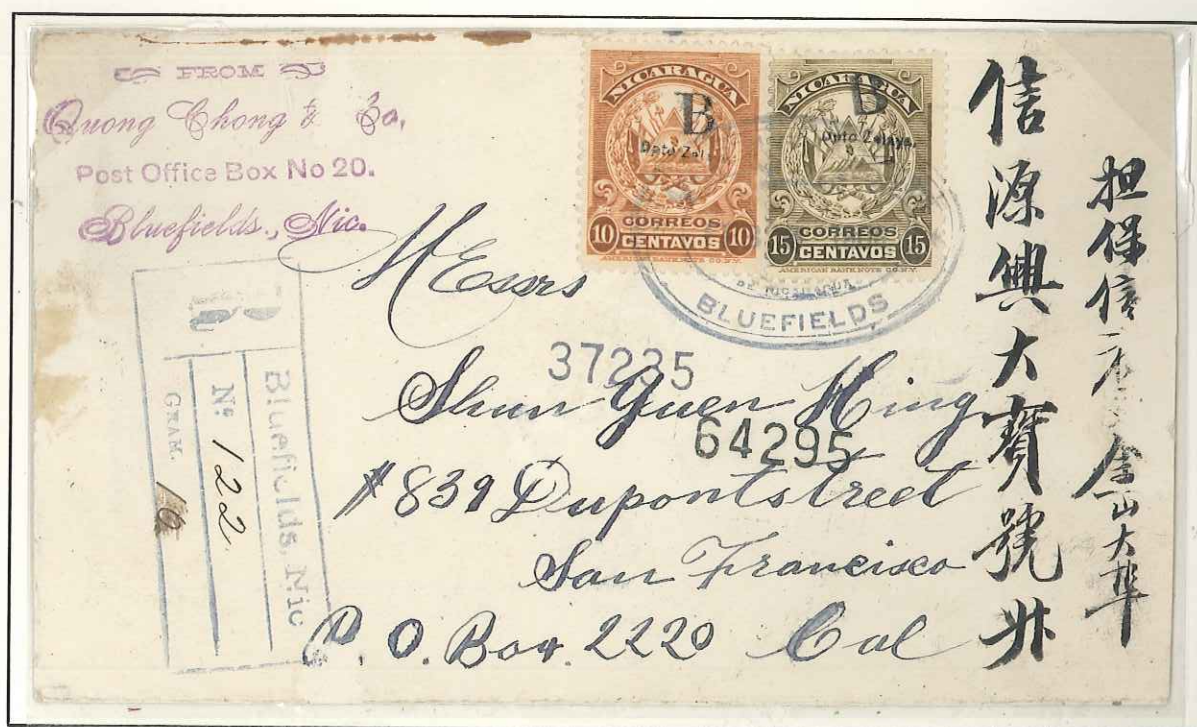 FROM
Quong Chong & Co,
Post Office Box No 20.
Bluefields., Nic.
NICARAGUA
B
Dpto Zel
CORREOS
10 CENTAVOS 10
AMERICAN BANK NOTE CO. N.Y.
NICARAGUA
B
Dpto Zelaya.
CORREOS
15 CENTAVOS 15
AMERICAN BANK NOTE CO. N.Y.
BLUEFIELDS
R
Bluefields, Nic
No 122
GRAM. 10
Messrs
37235
Shun Yuen Hing
64295
#839 Dupont street
San Francisco
P. O. Box. 2220 Cal
担保信
金山大埠
信源興大寶號升